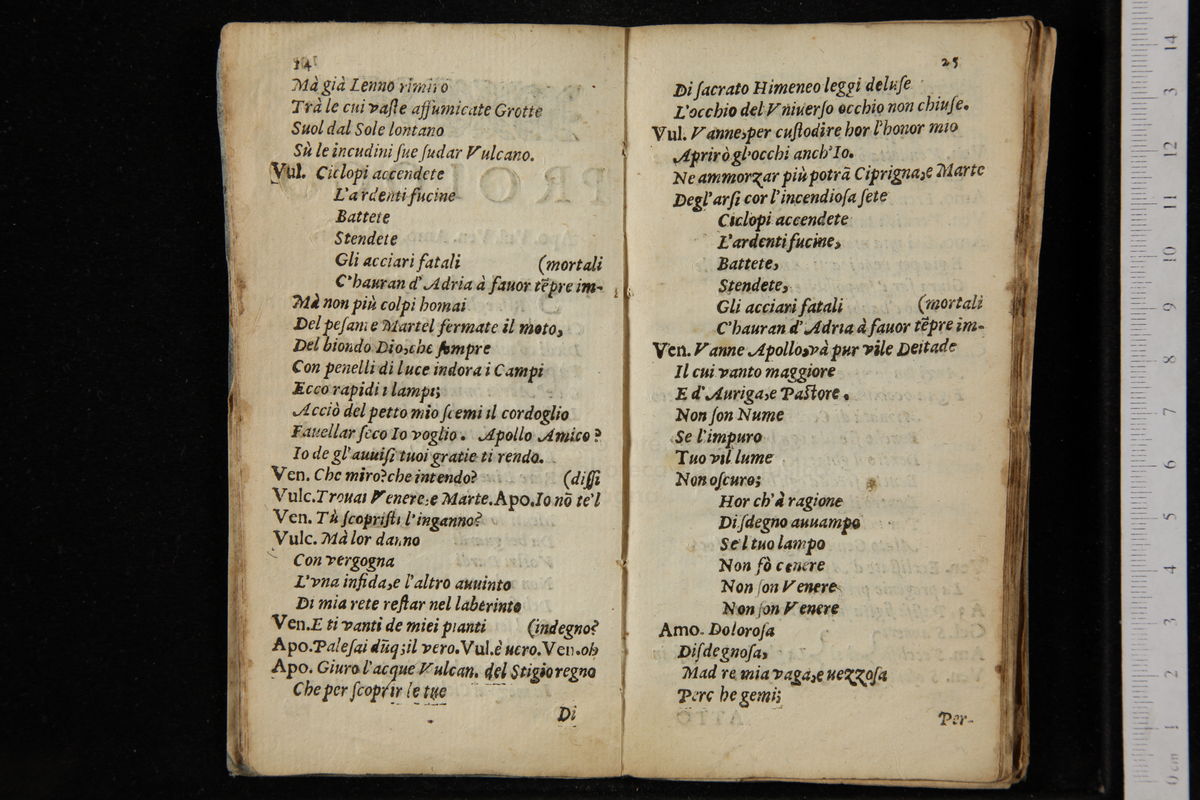 14
Mà già Lenno rimiro
Trà le cui vaſte affumicate Grotte
Suol dal Sole lontano
Sù le incudini ſue ſudar Vulcano.
Vul. Ciclopi accendete
L'ardenti fucine
Battete
Stendete
Gli acciari fatali (mortali
C'hauran d'Adria à fauor tẽpre im-
Mà non più colpi homai
Del peſante Martel fermate il moto,
Del biondo Dio, che ſempre
Con penelli di luce indora i Campi
Ecco rapidi i lampi;
Acciò del petto mio ſcemi il cordoglio
Fauellar ſeco Io voglio. Apollo Amico?
Io de gl'auuiſi tuoi gratie ti rendo.
Ven. Che miro? che intendo? (diſſi
Vulc. Trouai Venere, e Marte. Apo. Io nõ te'l
Ven. Tù ſcopriſti l'inganno?
Vulc. Mà lor danno
Con vergogna
L'vna infida, e l'altro auuinto
Di mia rete reſtar nel laberinto
Ven. E ti vanti de miei pianti (indegno?
Apo. Paleſai dũq; il vero. Vul. è uero. Ven. oh
Apo. Giuro l'acque Vulcan. del Stigio regno
Che per ſcoprir le tue
Di
25
Di ſacrato Himeneo leggi deluſe
L'occhio del Vniuerſo occhio non chiuſe.
Vul. Vanne, per cuſtodire hor l'honor mio
Aprirò gl'occhi anch'Io.
Ne ammorzar più potrà Ciprigna, e Marte
Degl'arſi cor l'incendioſa ſete
Ciclopi accendete
L'ardenti fucine,
Battete,
Stendete,
Gli acciari fatali (mortali
C'hauran d'Adria à fauor tẽpre im-
Ven. Vanne Apollo, và pur vile Deitade
Il cui vanto maggiore
E d'Auriga, e Paſtore.
Non ſon Nume
Se l'impuro
Tuo vil lume
Non oſcuro;
Hor ch'à ragione
Di ſdegno auuampo
Se'l tuo lampo
Non fò cenere
Non ſon Venere
Non ſon Venere
Amo. Doloroſa
Diſdegnoſa,
Mad re mia vaga, e uezzoſa
Perc he gemi;
Per-